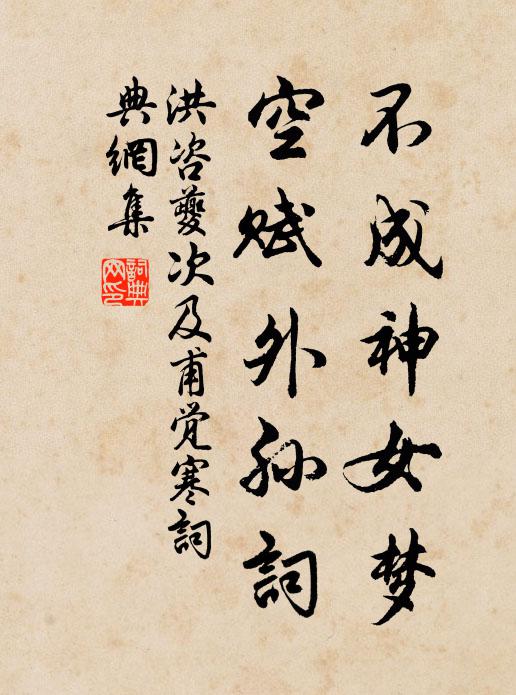 不成神女梦
空赋外孙詞
洪咨夔次及甫觉寒詞
典網集
詞典
网印